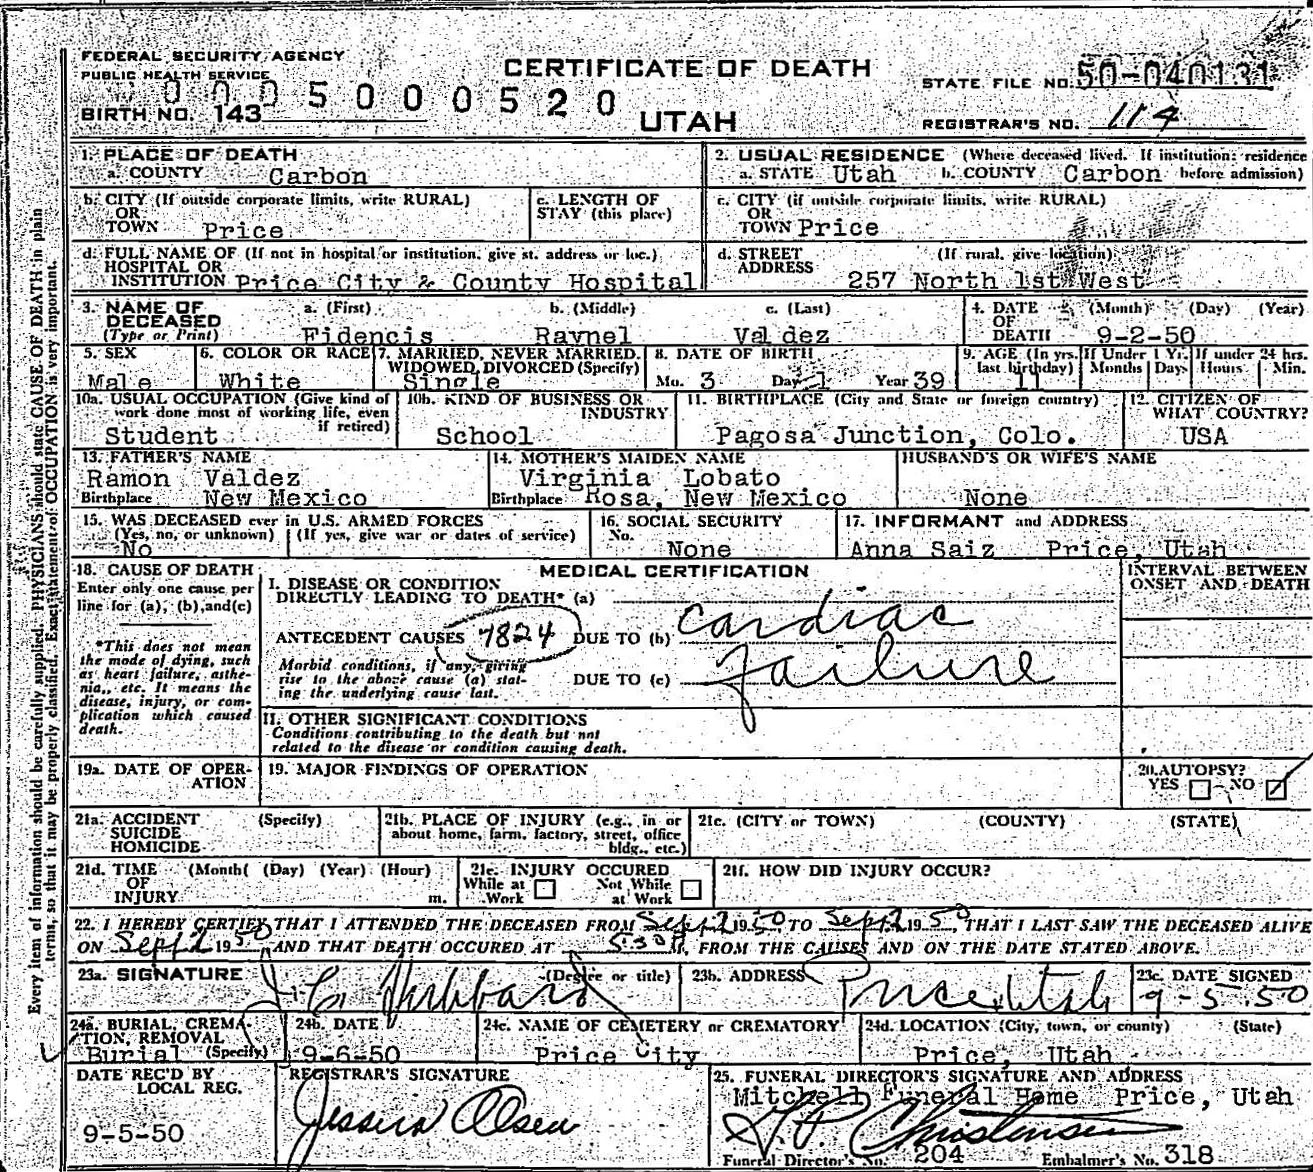 FEDERAL SECURITY AGENCY
PUBLIC HEALTH SERVICE
0005000520
BIRTH NO. 143
CERTIFICATE OF DEATH
UTAH
STATE FILE NO. 50-040131
REGISTRAR'S NO. 114
1. PLACE OF DEATH
a. COUNTY Carbon
2. USUAL RESIDENCE (Where deceased lived. If institution: residence
a. STATE Utah b. COUNTY Carbon before admission)
b. CITY (If outside corporate limits, write RURAL)
OR
TOWN Price
c. LENGTH OF
STAY (this place)
c. CITY (if outside corporate limits, write RURAL)
OR
TOWN Price
d. FULL NAME OF (If not in hospital or institution, give st. address or loc.)
HOSPITAL OR
INSTITUTION Price City & County Hospital
d. STREET (If rural, give location)
ADDRESS 257 North 1st West
3. NAME OF
DECEASED
(Type or Print)
a. (First) b. (Middle) c. (Last)
Fidencis Raynel Valdez
4. DATE (Month) (Day) (Year)
OF
DEATH 9-2-50
5. SEX
Male
6. COLOR OR RACE
White
7. MARRIED, NEVER MARRIED,
WIDOWED, DIVORCED (Specify)
Single
8. DATE OF BIRTH
Mo. 3 Day 1 Year 39
9. AGE (In yrs.
last birthday)
11
If Under 1 Yr.
Months Days
If under 24 hrs.
Hours Min.
10a. USUAL OCCUPATION (Give kind of
work done most of working life, even
if retired)
Student
10b. KIND OF BUSINESS OR
INDUSTRY
School
11. BIRTHPLACE (City and State or foreign country)
Pagosa Junction, Colo.
12. CITIZEN OF
WHAT COUNTRY?
USA
13. FATHER'S NAME
Ramon Valdez
Birthplace New Mexico
14. MOTHER'S MAIDEN NAME
Virginia Lobato
Birthplace Rosa, New Mexico
HUSBAND'S OR WIFE'S NAME
None
15. WAS DECEASED ever in U.S. ARMED FORCES
(Yes, no, or unknown) (If yes, give war or dates of service)
No
16. SOCIAL SECURITY
No.
None
17. INFORMANT and ADDRESS
Anna Saiz Price, Utah
18. CAUSE OF DEATH
Enter only one cause per
line for (a), (b), and (c)
*This does not mean
the mode of dying, such
as heart failure, asthe-
nia, etc. It means the
disease, injury, or com-
plication which caused
death.
MEDICAL CERTIFICATION
I. DISEASE OR CONDITION
DIRECTLY LEADING TO DEATH* (a)
ANTECEDENT CAUSES 7824 DUE TO (b) Cardiac
Morbid conditions, if any, giving
rise to the above cause (a) stat-
ing the underlying cause last.
DUE TO (c) Failure
II. OTHER SIGNIFICANT CONDITIONS
Conditions contributing to the death but not
related to the disease or condition causing death.
INTERVAL BETWEEN
ONSET AND DEATH
19a. DATE OF OPER-
ATION
19. MAJOR FINDINGS OF OPERATION
20. AUTOPSY?
YES NO
21a. ACCIDENT (Specify)
SUICIDE
HOMICIDE
21b. PLACE OF INJURY (e.g., in or
about home, farm, factory, street, office
bldg., etc.)
21c. (CITY or TOWN) (COUNTY) (STATE)
21d. TIME (Month( (Day) (Year) (Hour)
OF
INJURY m.
21e. INJURY OCCURED
While at Work Not While at Work
21f. HOW DID INJURY OCCUR?
22. I HEREBY CERTIFY THAT I ATTENDED THE DECEASED FROM Sept 2 1950 TO Sept 2 1950, THAT I LAST SAW THE DECEASED ALIVE
ON Sept 2 1950 AND THAT DEATH OCCURED AT 5:30 M, FROM THE CAUSES AND ON THE DATE STATED ABOVE.
23a. SIGNATURE (Degree or title)
J. C. Hubbard
23b. ADDRESS
Price, Utah
23c. DATE SIGNED
9-5-50
24a. BURIAL, CREMA-
TION, REMOVAL
Burial (Specify)
24b. DATE
9-6-50
24c. NAME OF CEMETERY or CREMATORY
Price City
24d. LOCATION (City, town, or county) (State)
Price, Utah
DATE REC'D BY
LOCAL REG.
9-5-50
REGISTRAR'S SIGNATURE
Olsen
25. FUNERAL DIRECTOR'S SIGNATURE AND ADDRESS
Mitchell Funeral Home Price, Utah
Christensen
Funeral Director's No. 204 Embalmer's No. 318
Every item of information should be carefully supplied. PHYSICIANS should state CAUSE OF DEATH in plain
terms, so that it may be properly classified. Exact statement of OCCUPATION is very important.